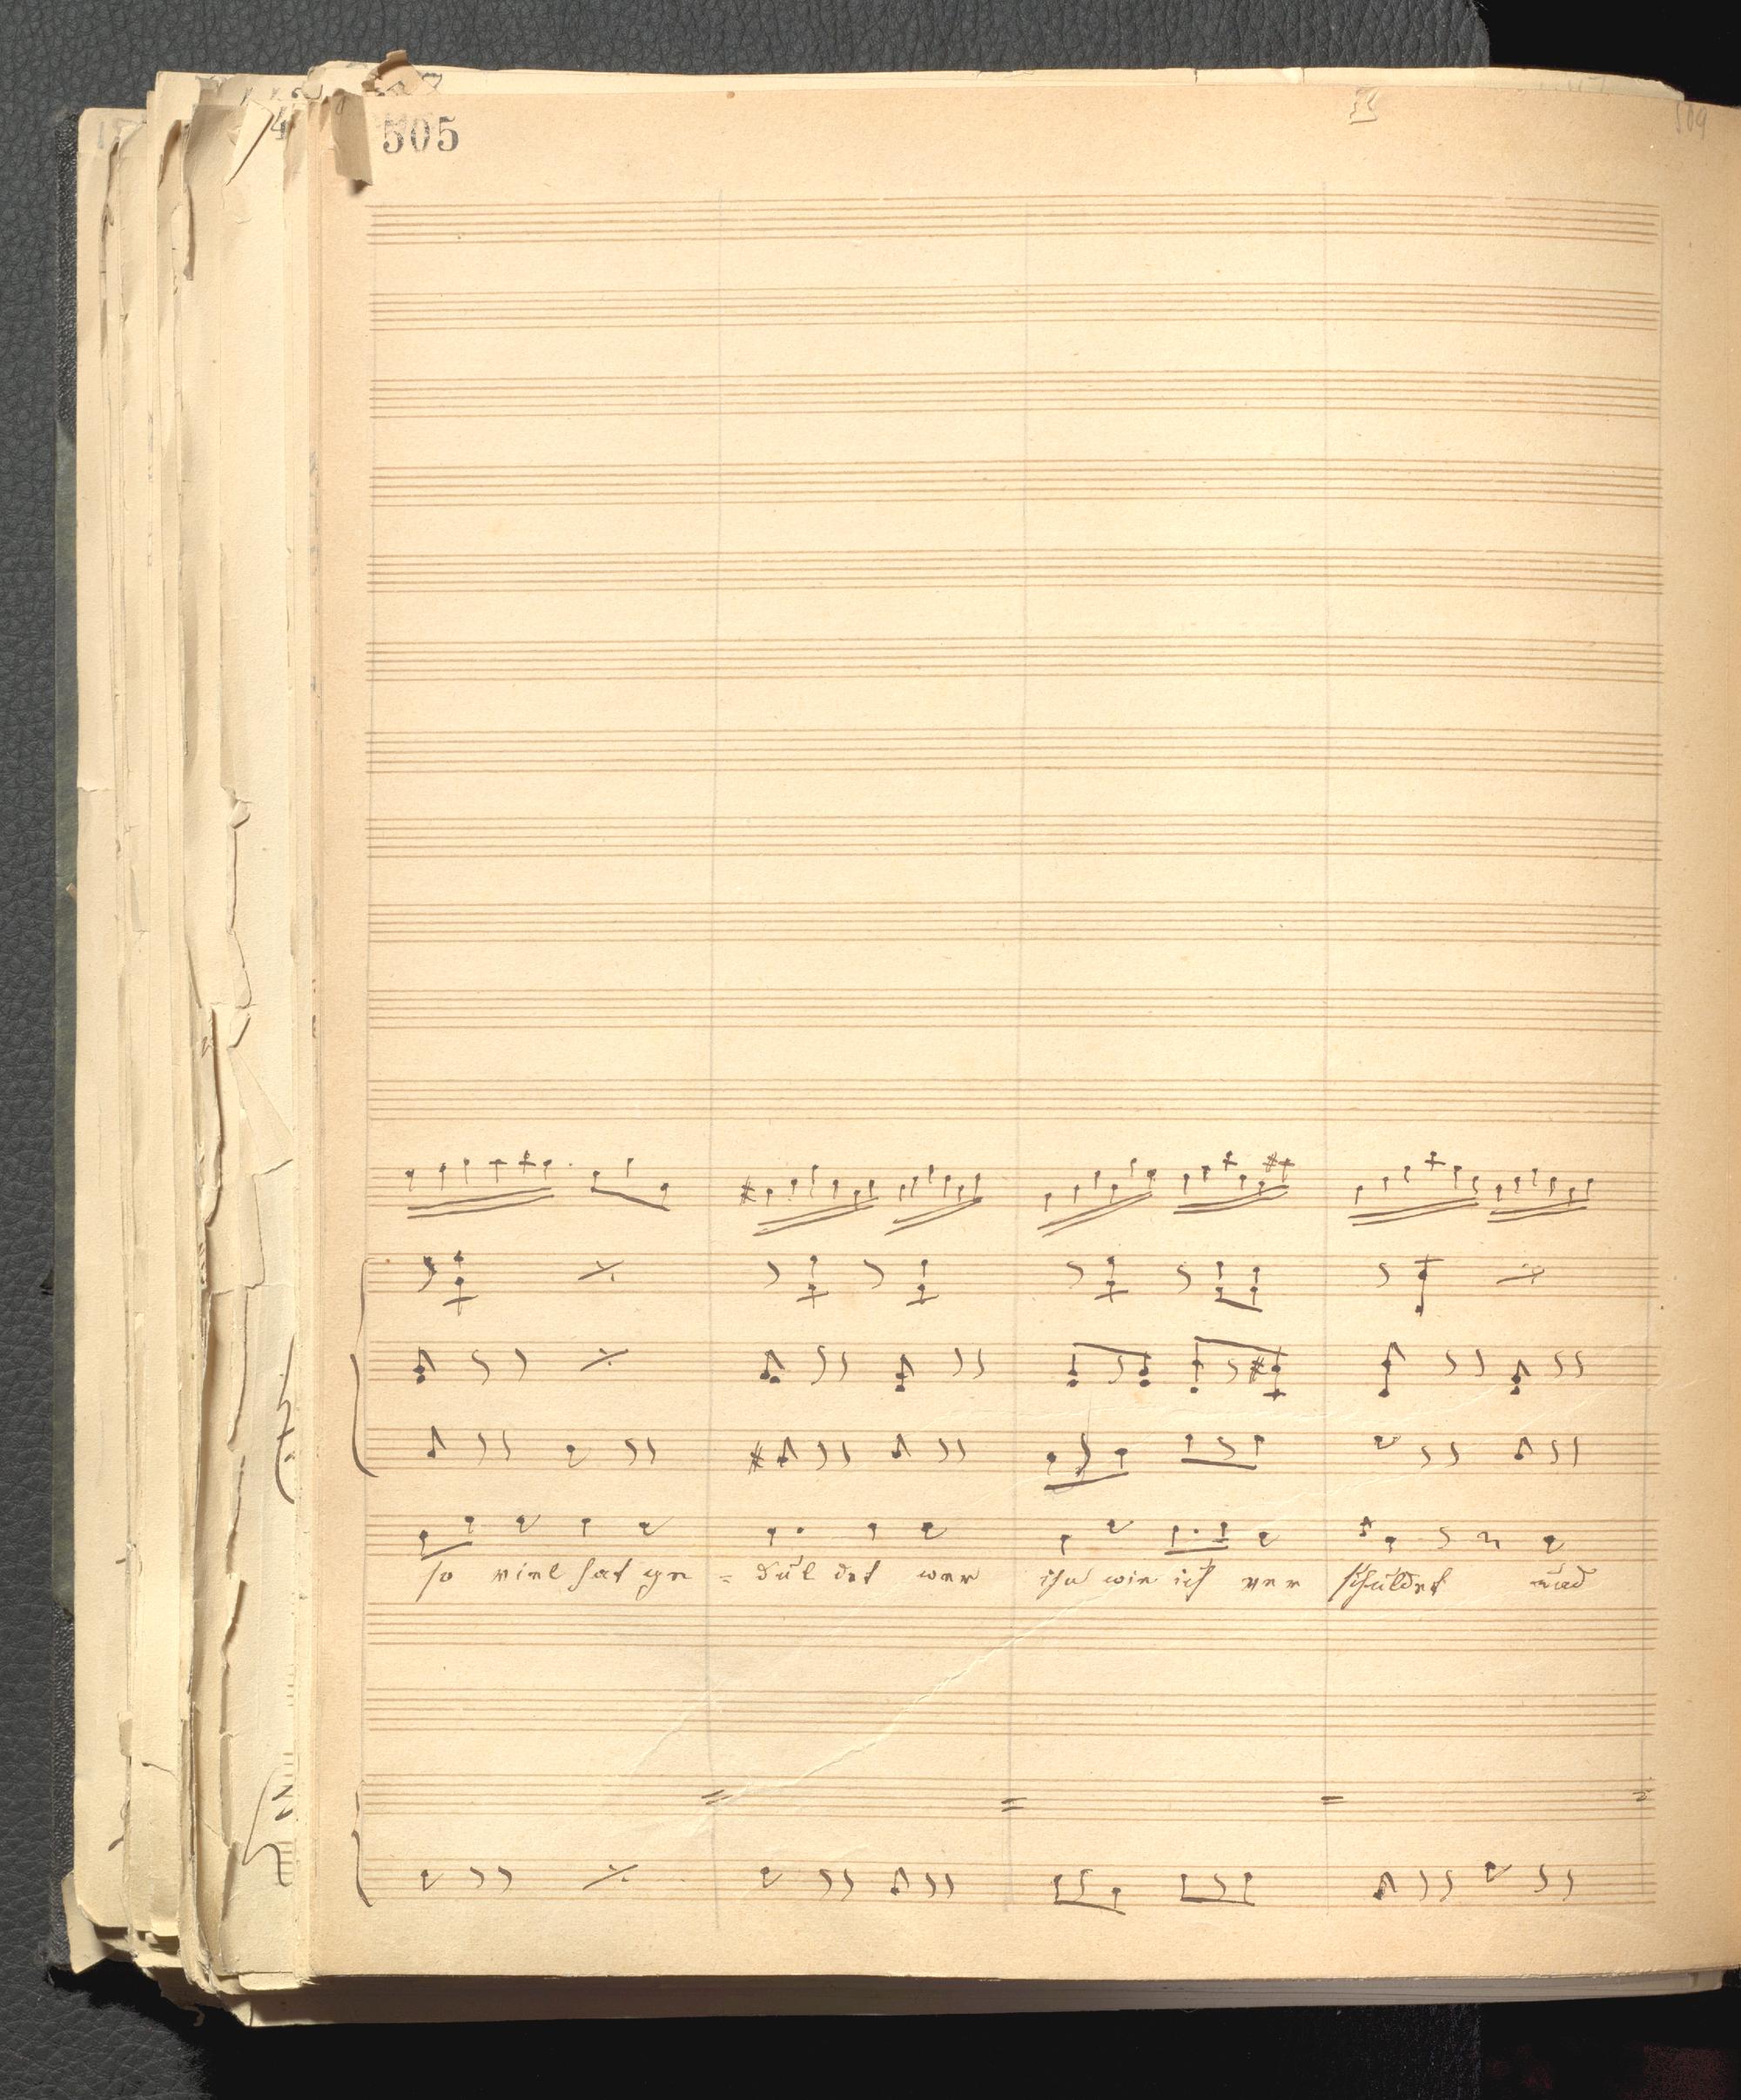 505
509
so viel hat ge = dul det wer ihn wie ich ver schuldet und